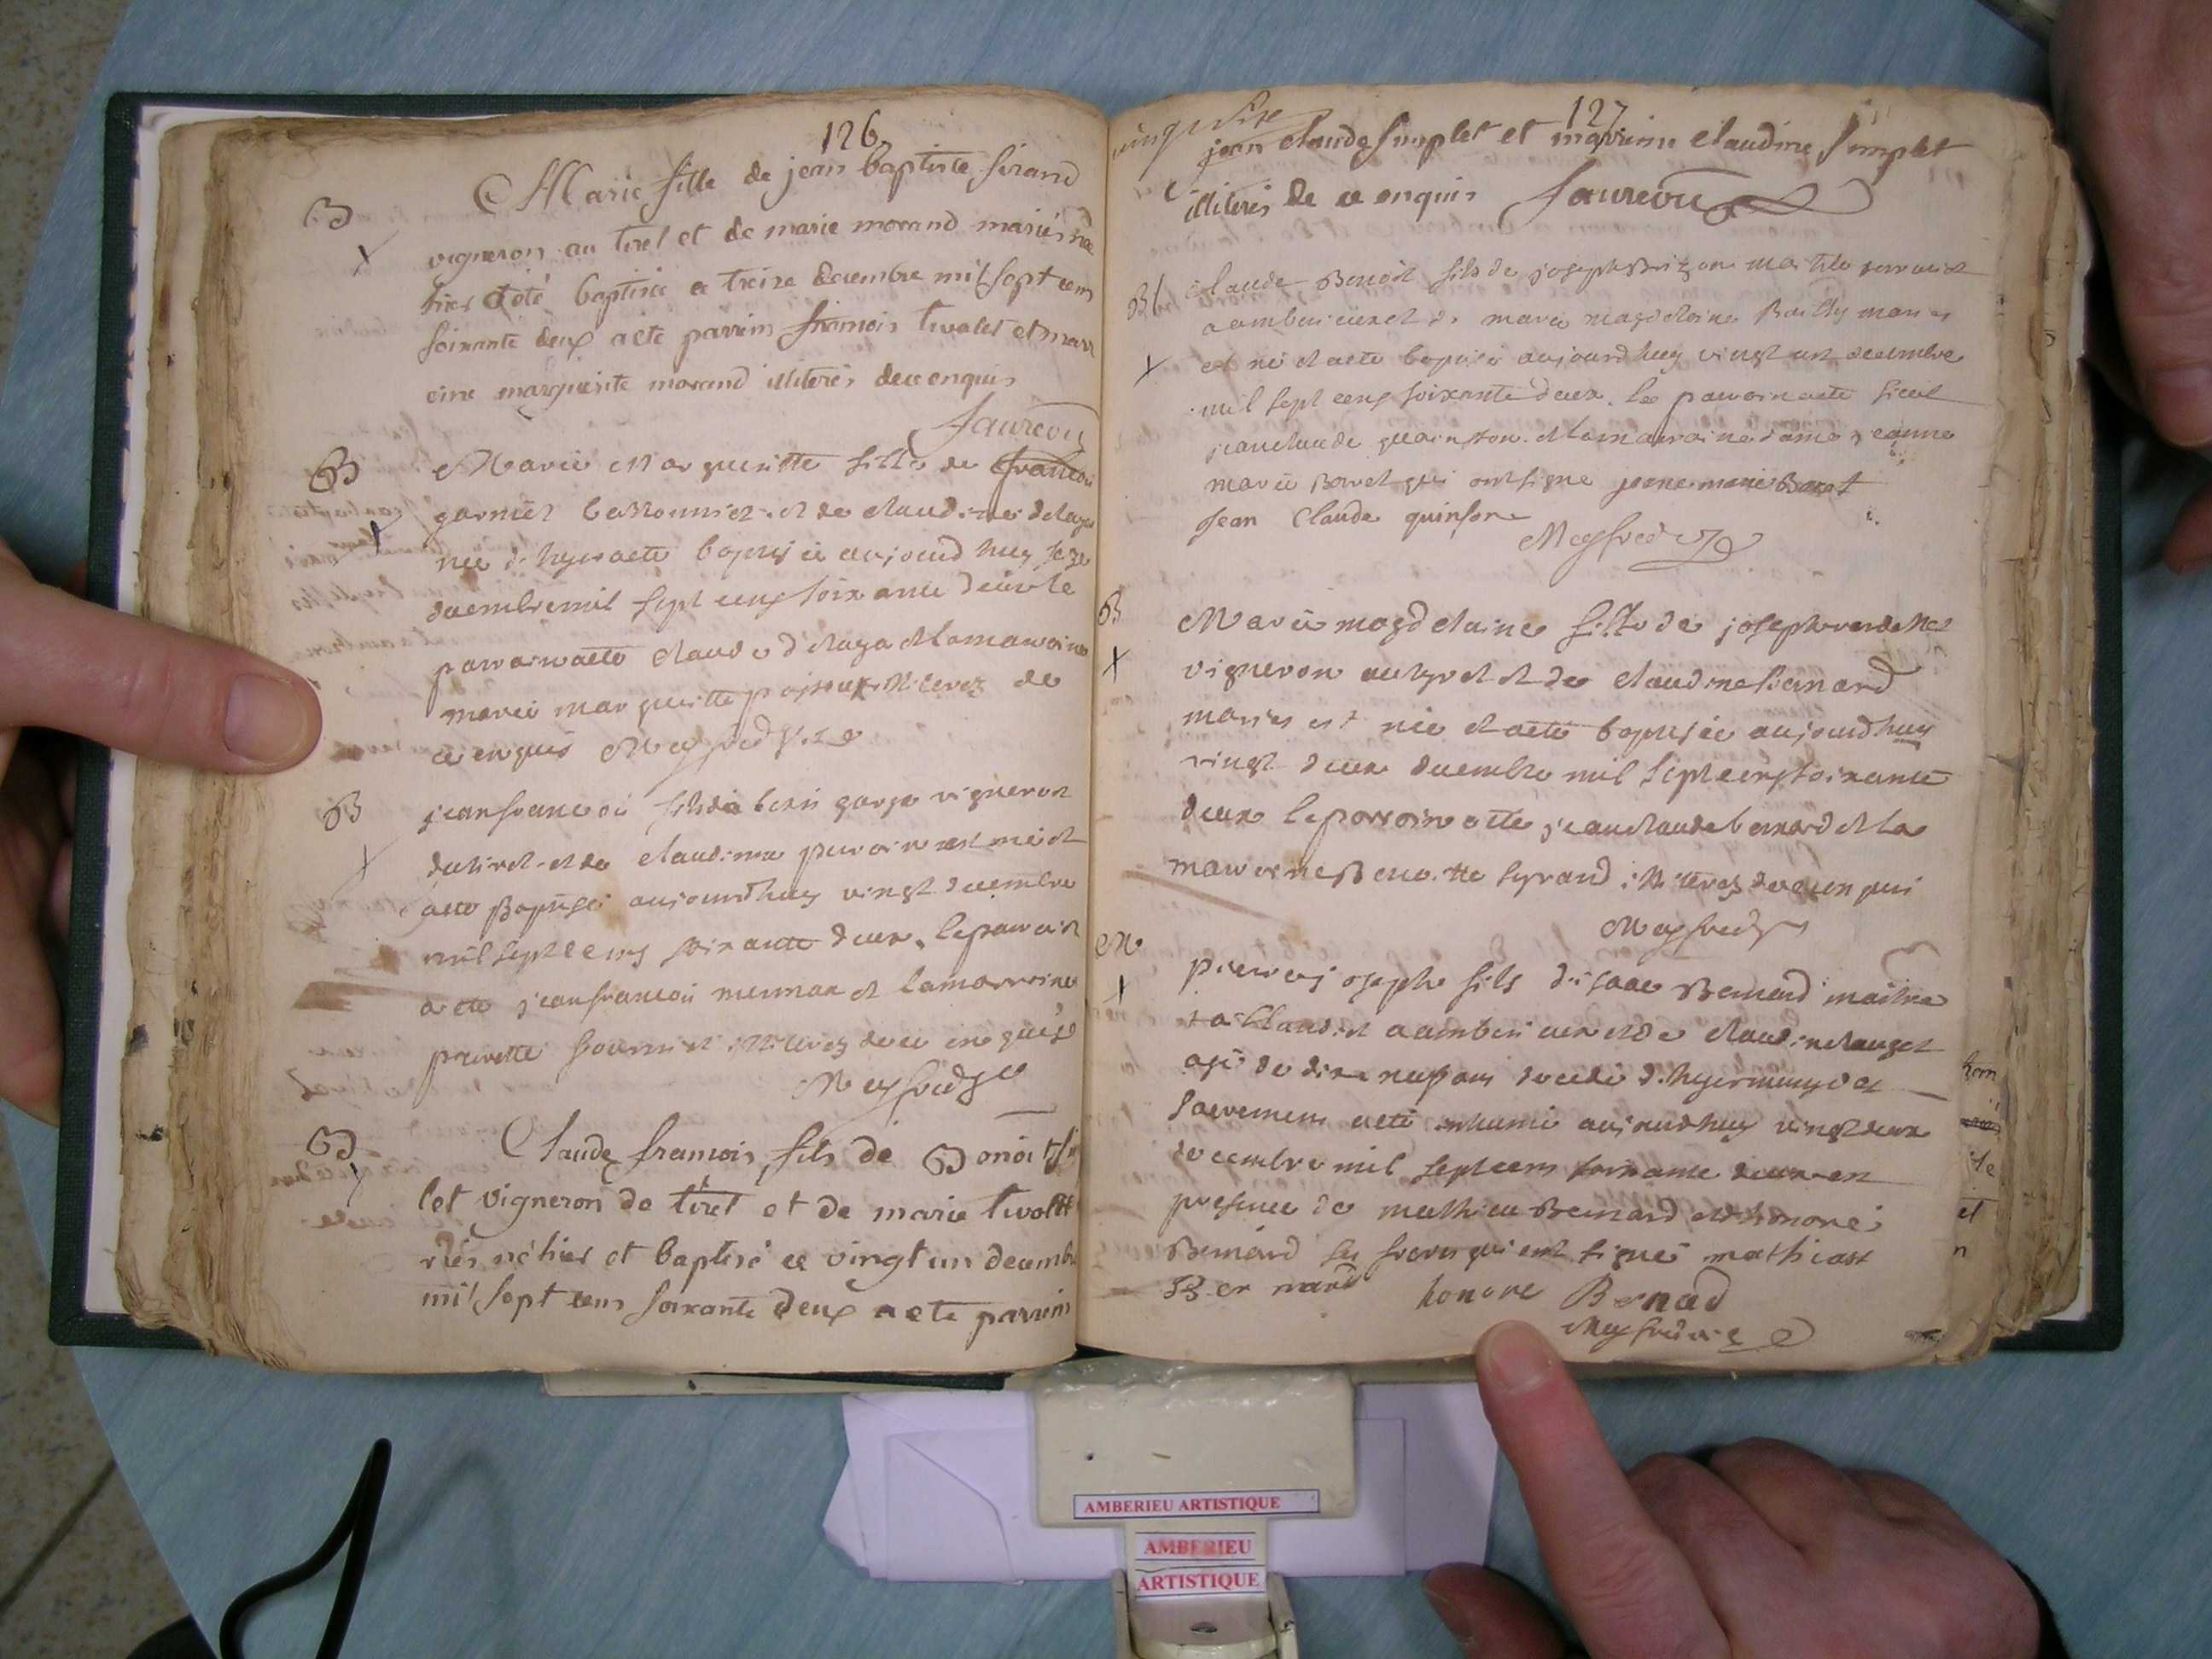 126
B Marie fille de jean baptiste sirand
vigneron au tiret et de marie morand mariés née
hier a été baptisée ce treize decembre mil sept cens
soixante deux a eté parrain françois tivolet et marr
eine marguerite morand illiterés de ce enquis
Faurevu
B Marie Margueritte fille de francoi
garnier et de claudine
née d'hyer a ete baptisée aujourd huy seze
decembre mil sept cens soixante deux le
parrain a ette claude delaga et la marraine
marie margueritte illiterez de
ce enquis Meyfred vice
B jean francoi fils de garge vigneron
du tiret et de claudine est né et
a ete Baptisé aujourdhuy vingt decembre
mil sept cens soixante deux, le parain
a ette jean francoi et la marraine
pierrette fournier illiterez de ce enquis
Meyfred
B Claude françois fils de Benoit sim
let vigneron de tiret et de marie tivollet
riés né hier et baptisé ce vingt un decemb
mil sept cens soixante deux a eté parrain
127
jean claude simplet et marreine claudine simplet
illiterés de ce enquis Faurevu
Bt claude Benoit fils de joseph maitre
a amberieu et de marie magdelaine Bailly maries
est né et a ete baptisé aujourdhuy vingt un decembre
mil sept cens soixante deux. le parrain a ete sieur
jean claude quinson et la marraine dame jeanne
marie Borret qui ont signe jeane marie
Jean Claude quinson
Meyfred
B Marie magdelaine fille de joseph
vigneron au tyret et de claudine bernard
maries est née et a ete baptisée aujourdhuy
vingt deux decembre mil sept cens soixante
deux le parrain a ette jean claude bernard et la
marraine Benoitte syrand illiterez de ce enqui
Meyfred
M pierre joseph fils d'isaac Bernard maitre
a amberieu et de claudine
agé de dix neuf ans decedé d'hyer muny des
sacremens a eté inhumé aujourdhuy vingt deux
decembre mil sept cens soixante deux en
presence de mathieu Bernard et d'honoré
Bernard ses freres qui ont signé
Bernard honore Bernad
Meyfred vice
AMBERIEU ARTISTIQUE
AMBERIEU
ARTISTIQUE